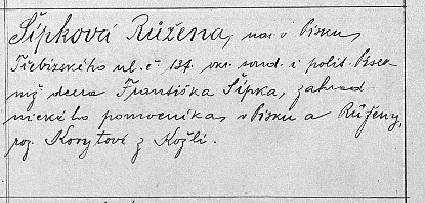 Šípková Růžena, nar. v Písku,
Třebízského ul. č. 134. okr. soud. i polit. Písec
níž dcera Františka Šípka, zahrad
nického pomocníka, v Písku a Růženy,
roz. Korytové z Kožlí.